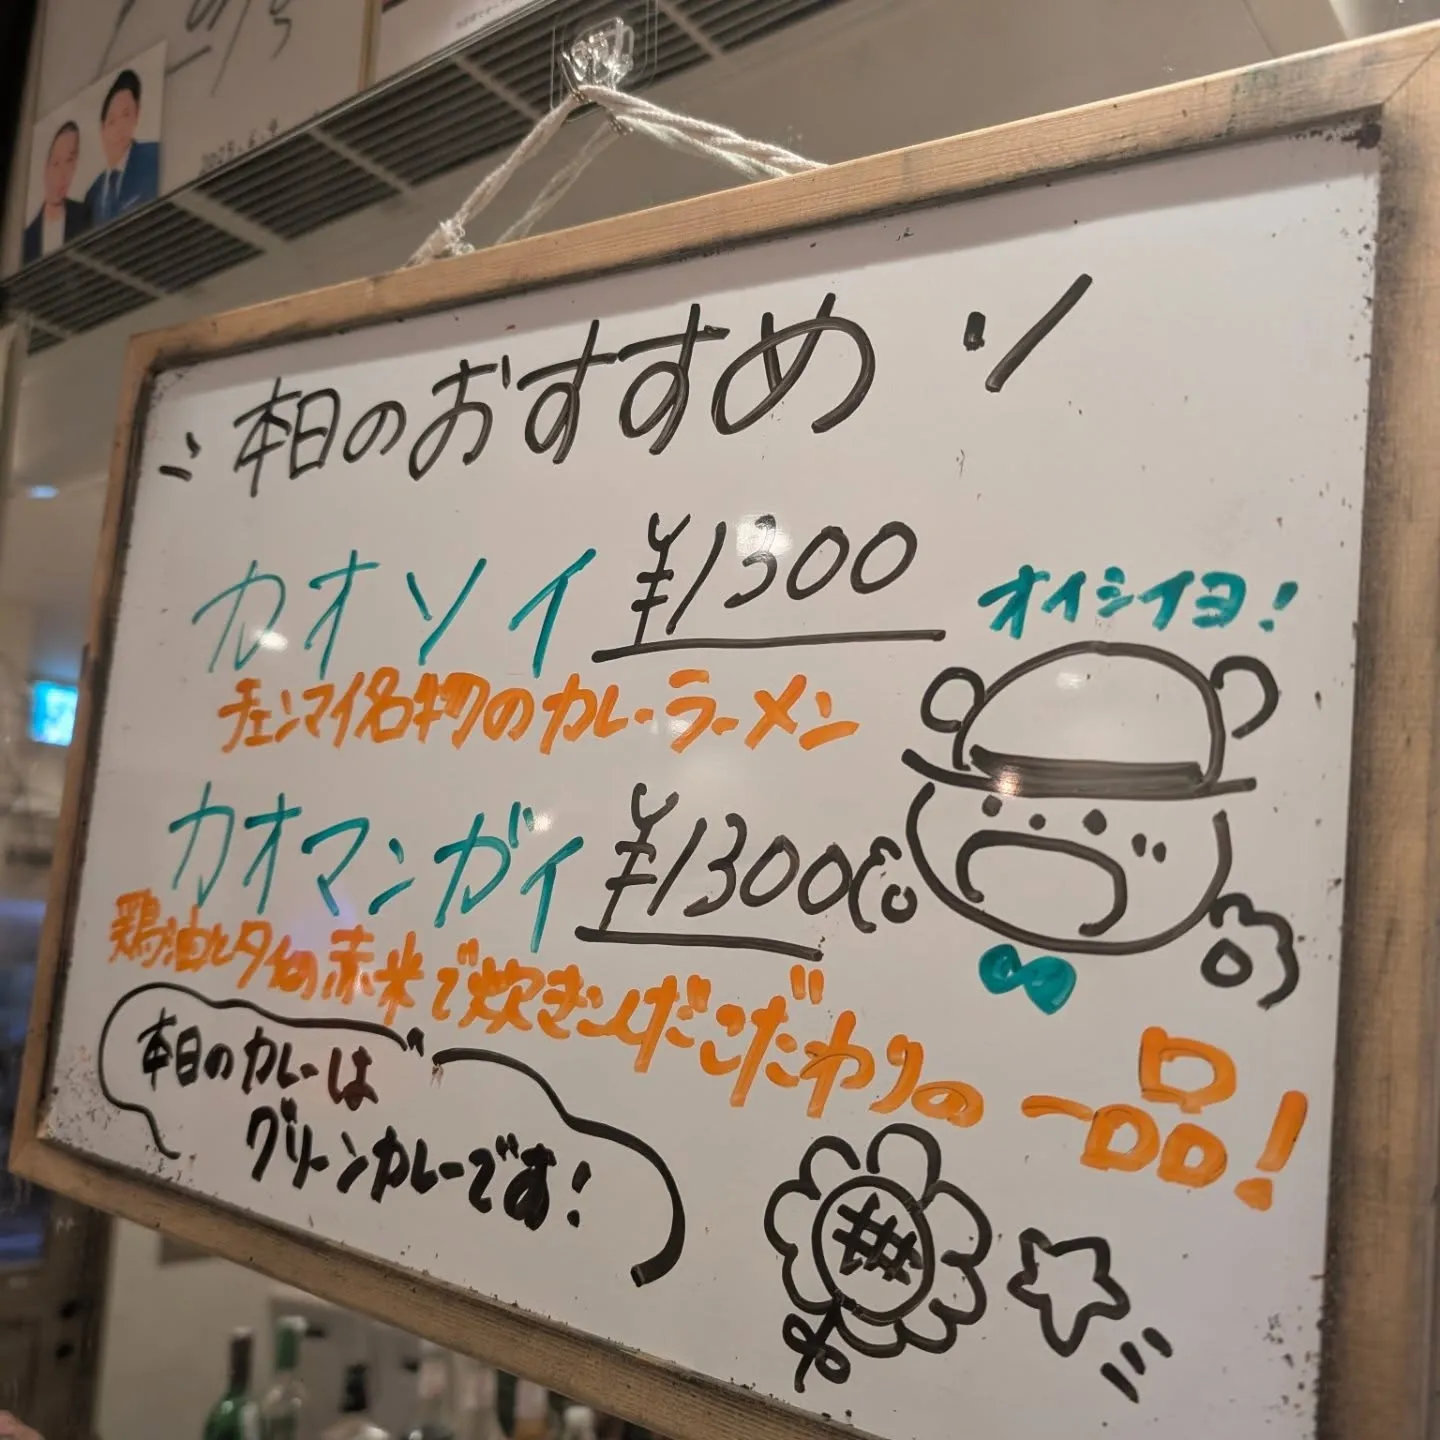 本日のおすすめ
カオソイ ¥1300
オイシイヨ!
チェンマイ名物のカレーラーメン
カオマンガイ ¥1300
鶏油とタイの赤米で炊きこんだこだわりの一品!
本日のカレーは
グリーンカレーです!